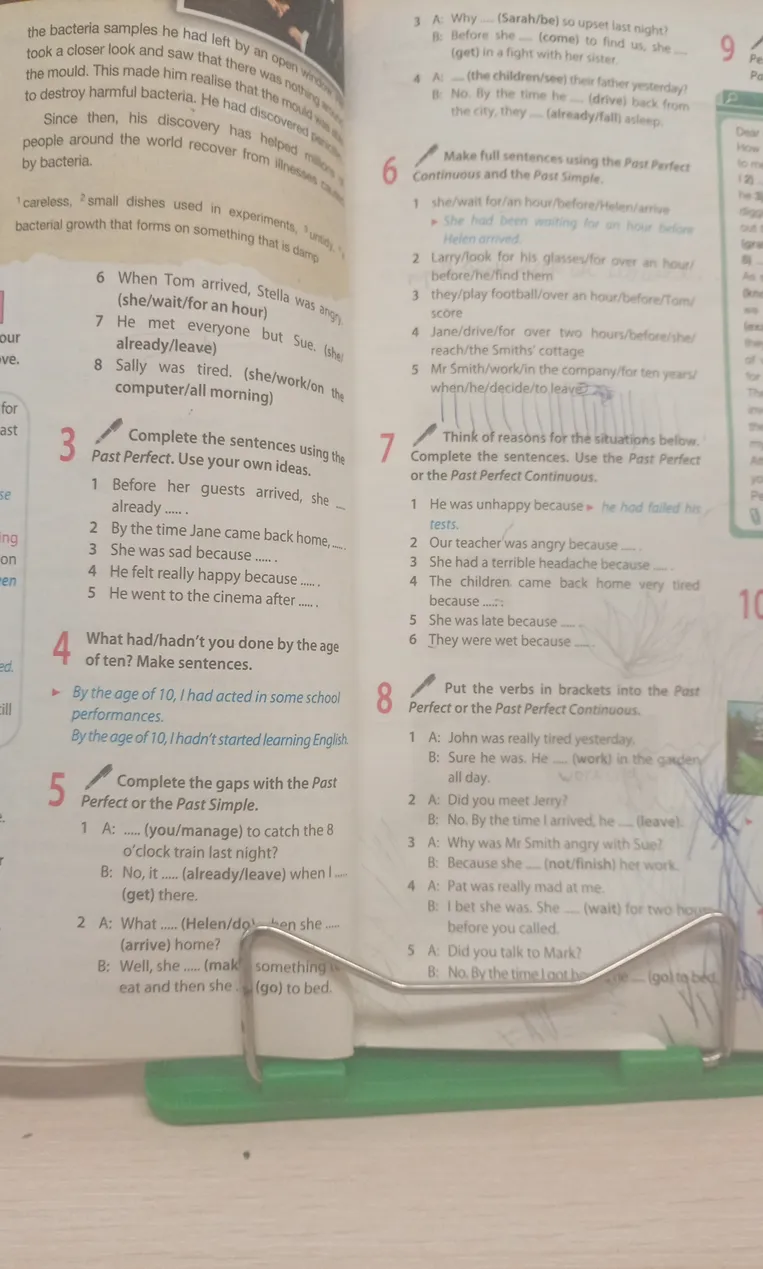 the bacteria samples he had left by an open window
took a closer look and saw that there was nothing
the mould. This made him realise that the mould was
to destroy harmful bacteria. He had discovered
Since then, his discovery has helped millions
people around the world recover from illnesses
by bacteria.
1 careless, 2 small dishes used in experiments, 3 untidy,
bacterial growth that forms on something that is damp
6 When Tom arrived, Stella was angry.
(she/wait/for an hour)
7 He met everyone but Sue. (she/
already/leave)
8 Sally was tired. (she/work/on the
computer/all morning)
our
ve.
for
ast
se
ing
on
en
ed.
till
3 Complete the sentences using the
Past Perfect. Use your own ideas.
1 Before her guests arrived, she ...
already ..... .
2 By the time Jane came back home, .....
3 She was sad because ..... .
4 He felt really happy because ..... .
5 He went to the cinema after ..... .
4 What had/hadn't you done by the age
of ten? Make sentences.
▸ By the age of 10, I had acted in some school
performances.
By the age of 10, I hadn't started learning English.
5 Complete the gaps with the Past
Perfect or the Past Simple.
1 A: ..... (you/manage) to catch the 8
o'clock train last night?
B: No, it ..... (already/leave) when I .....
(get) there.
2 A: What ..... (Helen/do) when she .....
(arrive) home?
B: Well, she ..... (mak something
eat and then she (go) to bed.
3 A: Why .... (Sarah/be) so upset last night?
B: Before she .... (come) to find us, she ....
(get) in a fight with her sister.
4 A: .... (the children/see) their father yesterday?
B: No. By the time he .... (drive) back from
the city, they .... (already/fall) asleep.
6 Make full sentences using the Past Perfect
Continuous and the Past Simple.
1 she/wait for/an hour/before/Helen/arrive
▸ She had been waiting for an hour before
Helen arrived.
2 Larry/look for his glasses/for over an hour/
before/he/find them
3 they/play football/over an hour/before/Tom/
score
4 Jane/drive/for over two hours/before/she/
reach/the Smiths' cottage
5 Mr Smith/work/in the company/for ten years/
when/he/decide/to leave
7 Think of reasons for the situations below.
Complete the sentences. Use the Past Perfect
or the Past Perfect Continuous.
1 He was unhappy because ▸ he had failed his
tests.
2 Our teacher was angry because .... .
3 She had a terrible headache because .... .
4 The children came back home very tired
because .... .
5 She was late because .... .
6 They were wet because .... .
8 Put the verbs in brackets into the Past
Perfect or the Past Perfect Continuous.
1 A: John was really tired yesterday.
B: Sure he was. He .... (work) in the garden
all day.
2 A: Did you meet Jerry?
B: No. By the time I arrived, he .... (leave).
3 A: Why was Mr Smith angry with Sue?
B: Because she .... (not/finish) her work.
4 A: Pat was really mad at me.
B: I bet she was. She .... (wait) for two hours
before you called.
5 A: Did you talk to Mark?
B: No. By the time I got .... (go) to bed.
9
Dear
How
10